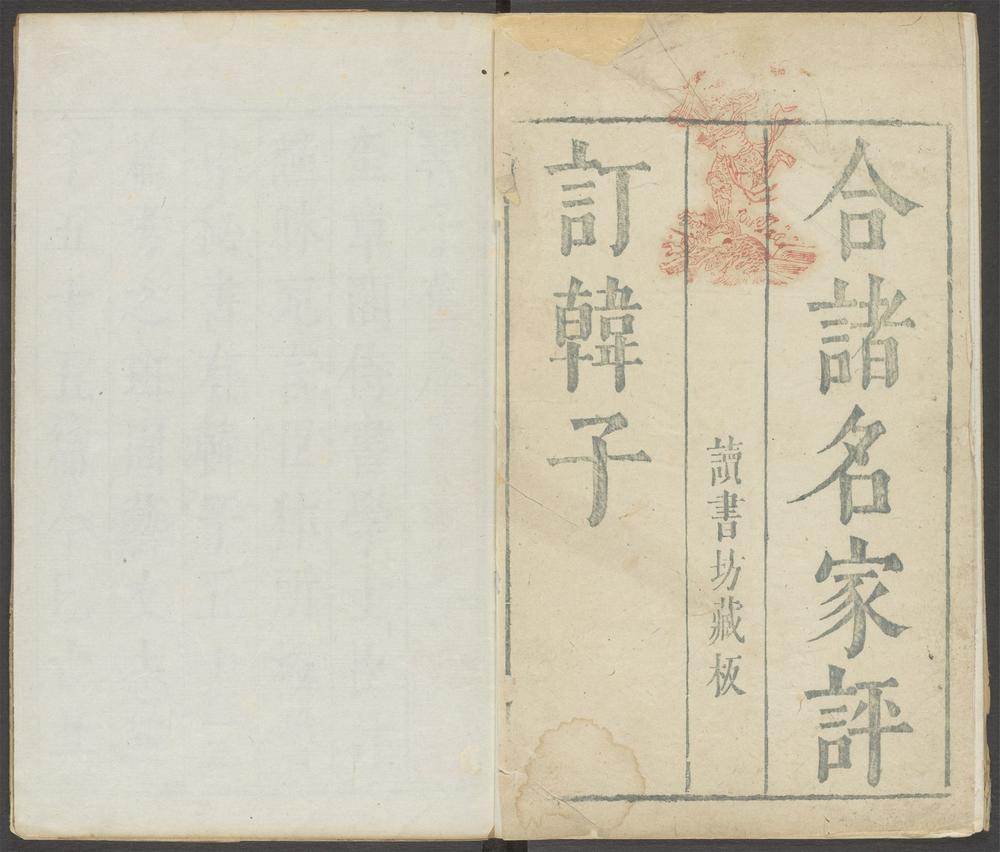 合諸名家評
讀書坊藏板
訂韓子